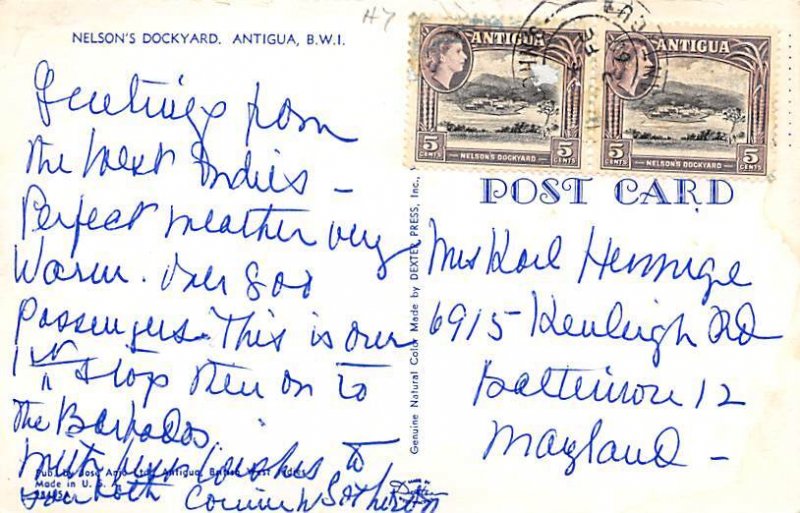 H7
NELSON'S DOCKYARD. ANTIGUA, B.W.I.
Greetings from
the West Indies –
Perfect weather very
Warm. Over 800
passengers. This is our
1st stop then on to
the Barbados.
With best wishes to
you both
Pub. by Jose Anjo Ltd. Antigua, British West Indies
Made in U.S.A.
ANTIGUA
5 CENTS
NELSON'S DOCKYARD
5 CENTS
ANTIGUA
5 CENTS
NELSON'S DOCKYARD
5 CENTS
POST CARD
Genuine Natural Color Made by DEXTER PRESS, Inc.,
Mrs Karl
6915 Kenleigh Rd
Baltimore 12
Mayland –